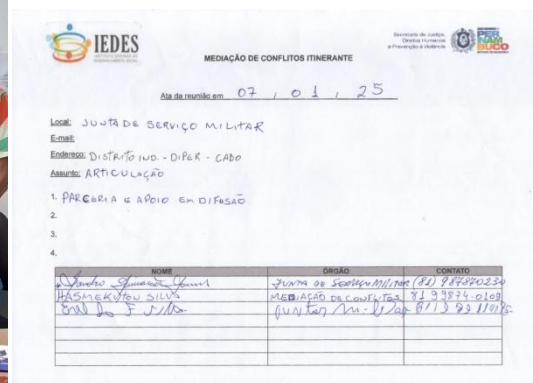 IEDES
Secretaria de Justiça,
Direitos Humanos
e Prevenção à Violência
PER
NAM
BUCO
MEDIAÇÃO DE CONFLITOS ITINERANTE
Ata da reunião em 07 / 01 / 25
Local: JUNTA DE SERVIÇO MILITAR
E-mail:
Endereço: DISTRITO IND. - DIPER - CABO
Assunto: ARTICULAÇÃO
1. PARCERIA E APOIO EM DIFUSÃO
2.
3.
4.
NOME ÓRGÃO CONTATO
JUNTA DE SERVIÇO MILITAR (81) 987870230
HASMEKUTON SILVA MEDIAÇÃO DE CONFLITOS 81 99874-0109